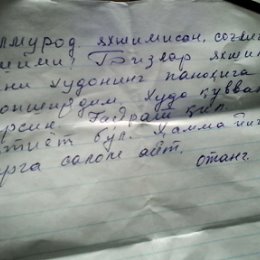 лмурод яхшимисан, соғли
мийми? Бизлар яхши
ни худонинг паноҳига
опширдим, худо қувва
рсин. Ғайрат қил.
тиёт бўл. Ҳамма
рга салом айт.
отанг.